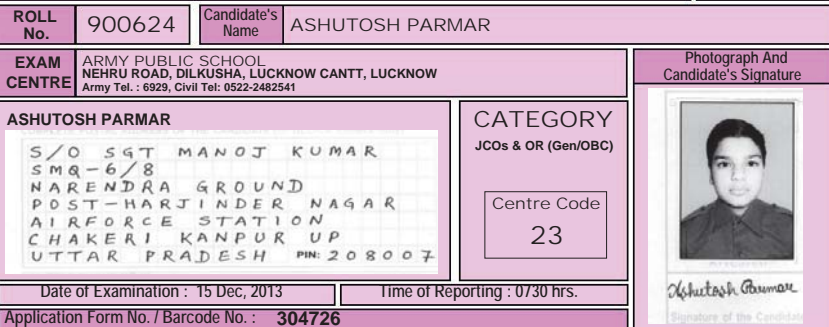 ROLL No. 900624 Candidate's Name ASHUTOSH PARMAR
EXAM CENTRE
ARMY PUBLIC SCHOOL
NEHRU ROAD, DILKUSHA, LUCKNOW CANTT, LUCKNOW
Army Tel. : 6929, Civil Tel: 0522-2482541
Photograph And
Candidate's Signature
ASHUTOSH PARMAR
S/O SGT MANOJ KUMAR
SMQ-6/8
NARENDRA GROUND
POST-HARJINDER NAGAR
AIRFORCE STATION
CHAKERI KANPUR UP
UTTAR PRADESH PIN: 208007
CATEGORY
JCOs & OR (Gen/OBC)
Centre Code
23
Ashutosh Parmar
Signature of the Candidate
Date of Examination : 15 Dec, 2013 Time of Reporting : 0730 hrs.
Application Form No. / Barcode No. : 304726